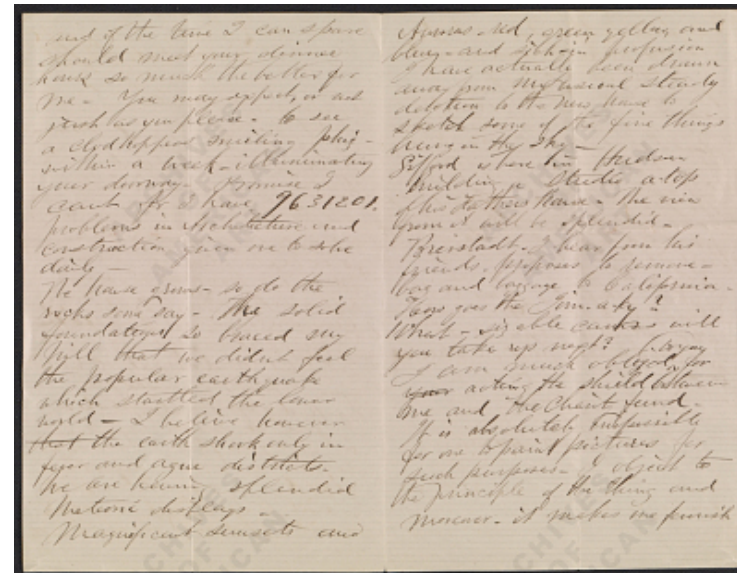 end of the time I can spare
should meet your dinner
hour so much the better for
me - You may expect, or not
just as you please - to see
a clodhopper smiling phiz -
within a week - illuminating
your doorway - Promise I
cant for I have 9631201.
problems in Architecture and
construction given me to solve
daily -
The house grows - so do the
rocks some say - the solid
foundations so braced my
hill that we didnt feel
the popular earthquake
which startled the lower
world - I believe however
that the earth shook only in
fever and ague districts.
We are having splendid
Meteoric displays -
Magnificent sunsets and
Auroras - red, green yellow and
blue - and such in profusion
I have actually been drawn
away from my usual steady
devotion to the new house to
sketch some of the fine things
hung in the sky -
Gifford is here in Hudson
building a studio a-top
of his Fathers house - The view
from it will be splendid -
Bierstadt - I hear from his
friends, proposes to remove -
bag and baggage to California -
How goes the
What - sizable canvas will
you take up next?
I am much obliged for
your acting the shield between
me and the Christ fund -
It is absolutely impossible
for me to paint pictures for
such purposes - I object to
the principle of the thing and
moreover - it makes me feverish